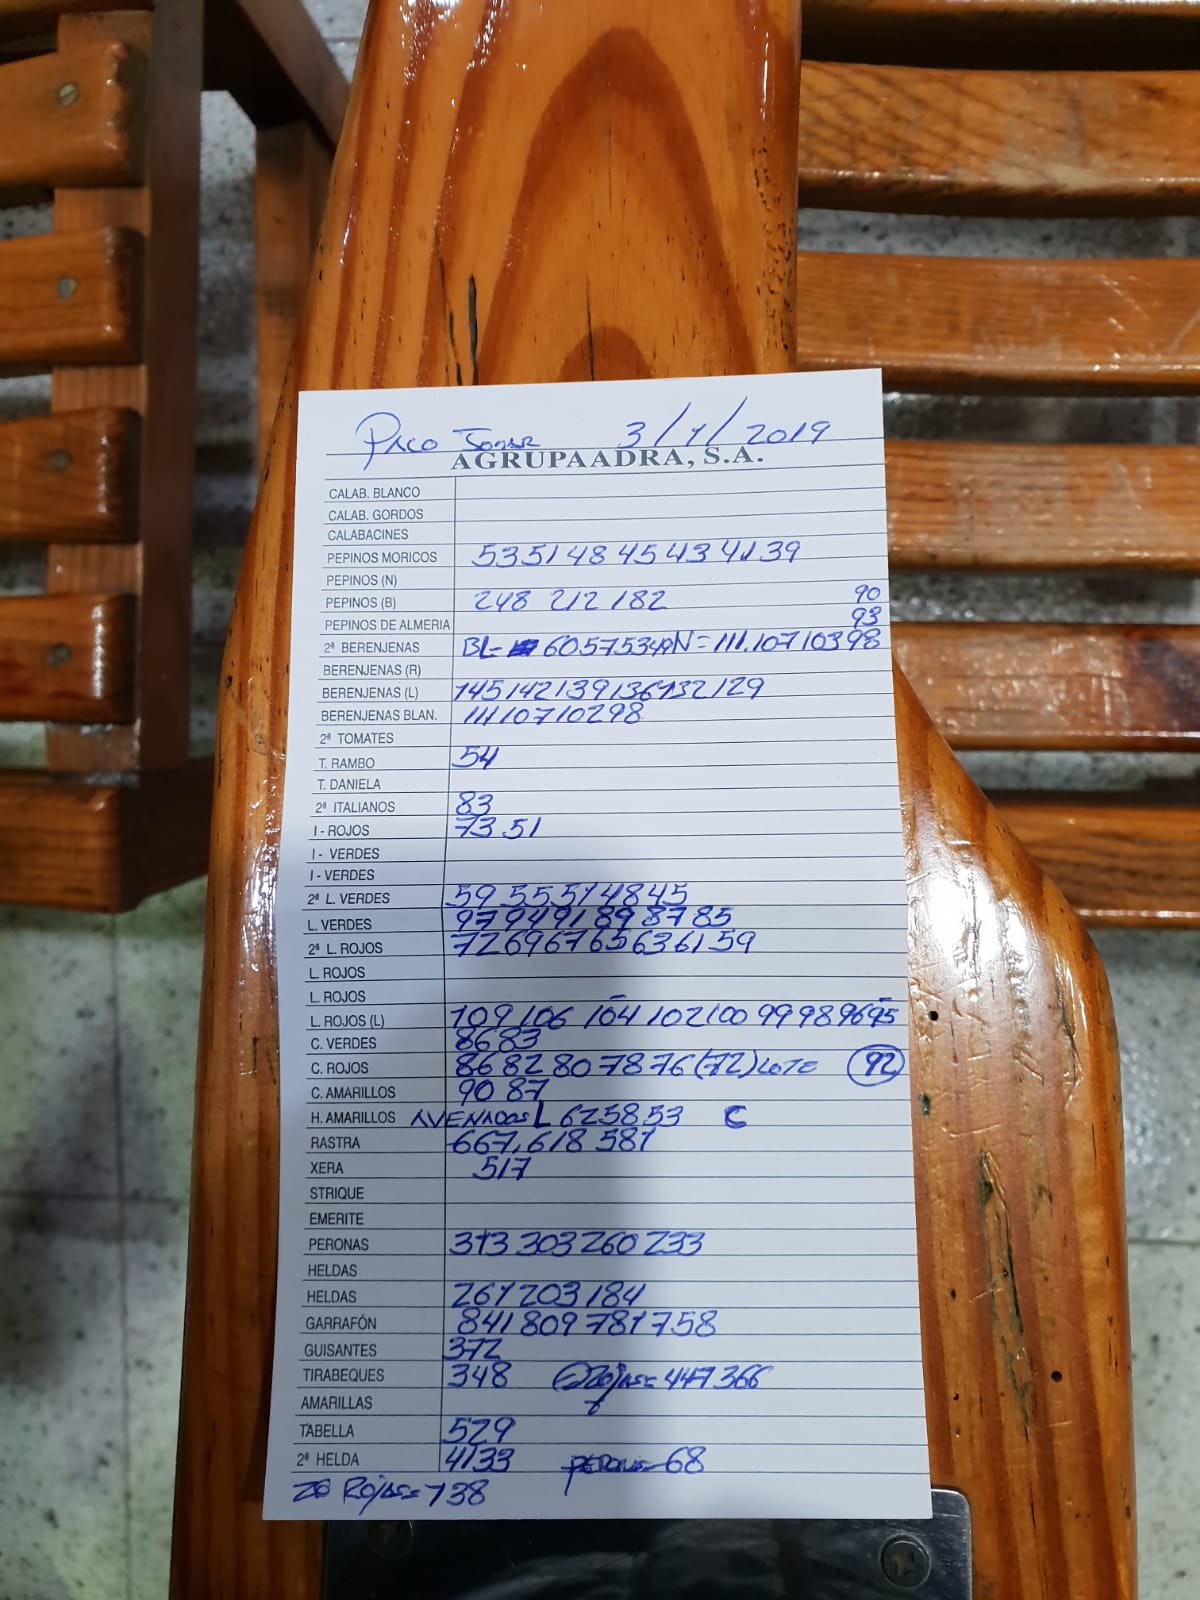 Paco Jomar 3/1/2019
AGRUPAADRA, S.A.
CALAB. BLANCO
CALAB. GORDOS
CALABACINES
PEPINOS MORICOS 53 51 48 45 43 41 39
PEPINOS (N)
PEPINOS (B) 248 212 182 90
PEPINOS DE ALMERIA 93
2ª BERENJENAS BL- 60 57 53 49 N= 111. 107 103 98
BERENJENAS (R)
BERENJENAS (L) 145 142 139 136 132 129
BERENJENAS BLAN. 111 107 102 98
2ª TOMATES
T. RAMBO 54
T. DANIELA
2ª ITALIANOS 83
I - ROJOS 73 51
I - VERDES
I - VERDES
2ª L. VERDES 59 55 51 48 45
L. VERDES 97 94 91 89 87 85
2ª L. ROJOS 72 69 67 65 63 61 59
L. ROJOS
L. ROJOS
L. ROJOS (L) 109 106 104 102 100 99 98 96 95
C. VERDES 86 83
C. ROJOS 86 82 80 78 76 (72) LOTE 92
C. AMARILLOS 90 87
H. AMARILLOS AVENADOS L 62 58 53 C
RASTRA 667, 618 581
XERA 517
STRIQUE
EMERITE
PERONAS 313 303 260 233
HELDAS
HELDAS 261 203 184
GARRAFÓN 841 809 781 758
GUISANTES 372
TIRABEQUES 348 Rojas= 447 366
AMARILLAS
TABELLA 529
2ª HELDA 41 33 PERONA= 68
Rojas= 138